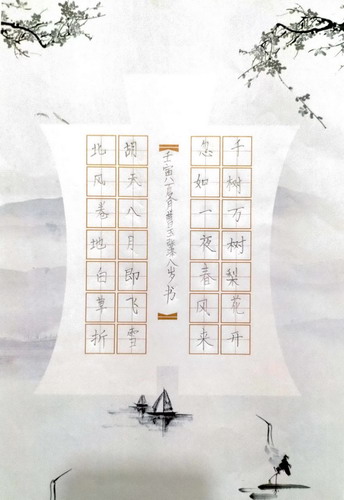 北风卷地白草折
胡天八月即飞雪
忽如一夜春风来
千树万树梨花开
壬寅八岁书